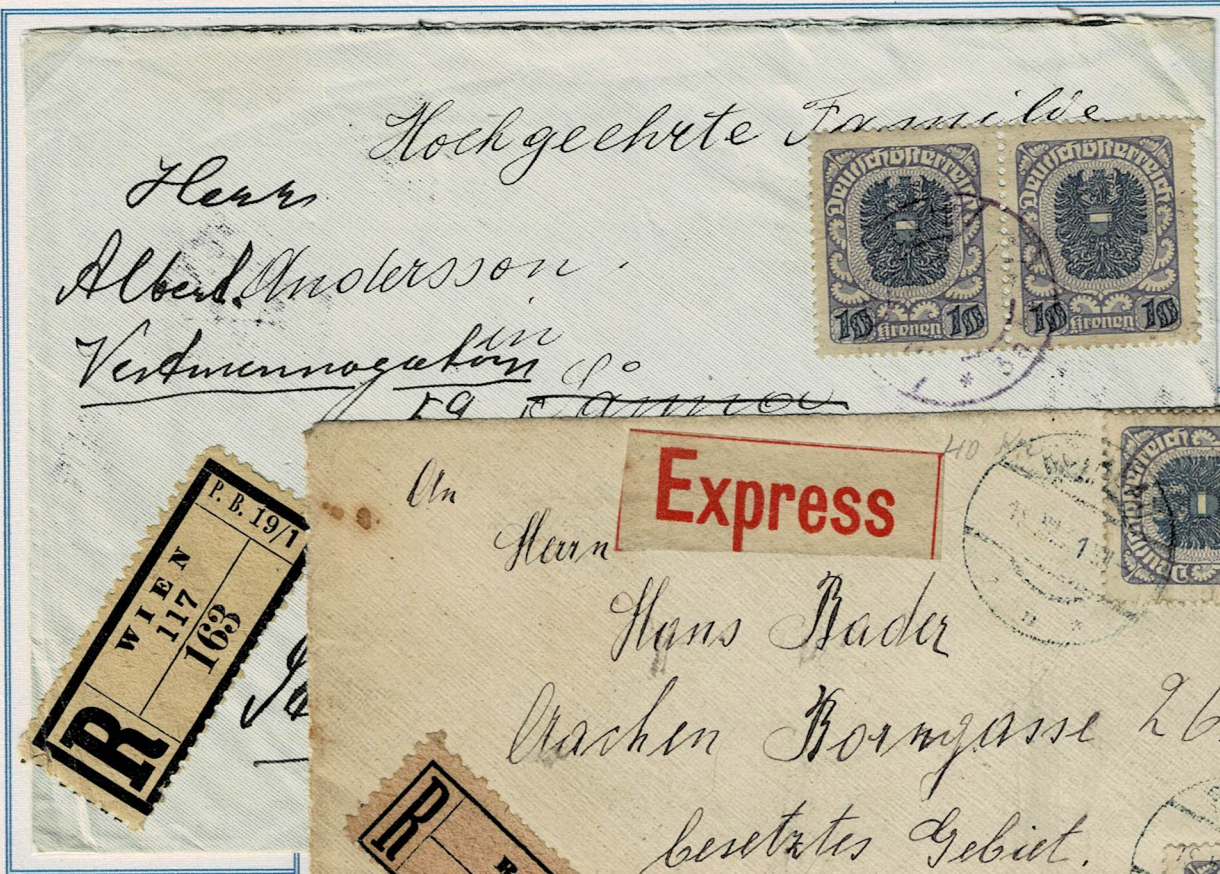 Hochgeehrte Familie
Herrn
Albert Andersson.
in
Deutschösterreich
10 Kronen 10
Deutschösterreich
10 Kronen 10
P. B. 19/1
WIEN
117
163
R
An
Express
40
Herrn
Hans Bader
Aachen Borngasse 26
besetztes Gebiet.
R